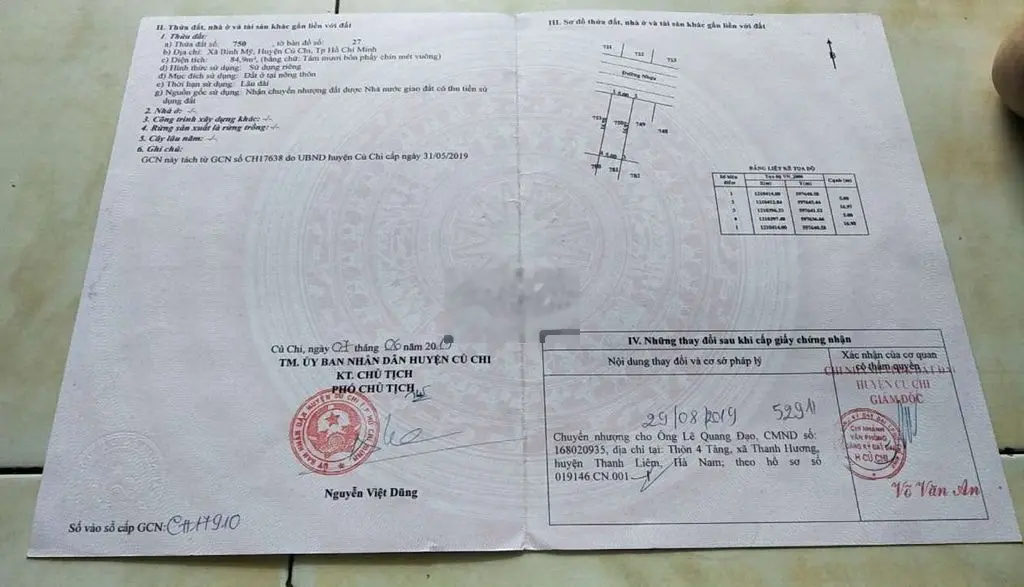 II. Thửa đất, nhà ở và tài sản khác gắn liền với đất
1. Thửa đất:
a) Thửa đất số: 750 , tờ bản đồ số: 27
b) Địa chỉ: Xã Bình Mỹ, Huyện Củ Chi, Tp Hồ Chí Minh
c) Diện tích: 84,9m², (bằng chữ: Tám mươi bốn phẩy chín mét vuông)
d) Hình thức sử dụng: Sử dụng riêng
đ) Mục đích sử dụng: Đất ở tại nông thôn
e) Thời hạn sử dụng: Lâu dài
g) Nguồn gốc sử dụng: Nhận chuyển nhượng đất được Nhà nước giao đất có thu tiền sử
dụng đất
2. Nhà ở: -/-
3. Công trình xây dựng khác: -/-
4. Rừng sản xuất là rừng trồng: -/-
5. Cây lâu năm: -/-
6. Ghi chú:
GCN này tách từ GCN số CH17638 do UBND huyện Củ Chi cấp ngày 31/05/2019
Củ Chi, ngày 07 tháng 06 năm 2019
TM. ỦY BAN NHÂN DÂN HUYỆN CỦ CHI
KT. CHỦ TỊCH
PHÓ CHỦ TỊCH
Nguyễn Việt Dũng
Số vào sổ cấp GCN: CH17910
III. Sơ đồ thửa đất, nhà ở và tài sản khác gắn liền với đất
Đường Nhựa
750
749
748
BẢNG LIỆT KÊ TỌA ĐỘ
Số hiệu điểm
Tọa độ VN_2000
X(m)
Y(m)
Cạnh (m)
IV. Những thay đổi sau khi cấp giấy chứng nhận
Nội dung thay đổi và cơ sở pháp lý
Xác nhận của cơ quan
có thẩm quyền
29/08/2019
Chuyển nhượng cho Ông Lê Quang Đạo, CMND số:
168020935, địa chỉ tại: Thôn 4 Tăng, xã Thanh Hương,
huyện Thanh Liêm, Hà Nam; theo hồ sơ số
019146.CN.001
HUYỆN CỦ CHI
GIÁM ĐỐC
CHI NHÁNH
VĂN PHÒNG
ĐĂNG KÝ ĐẤT ĐAI
H CỦ CHI
Võ Văn An